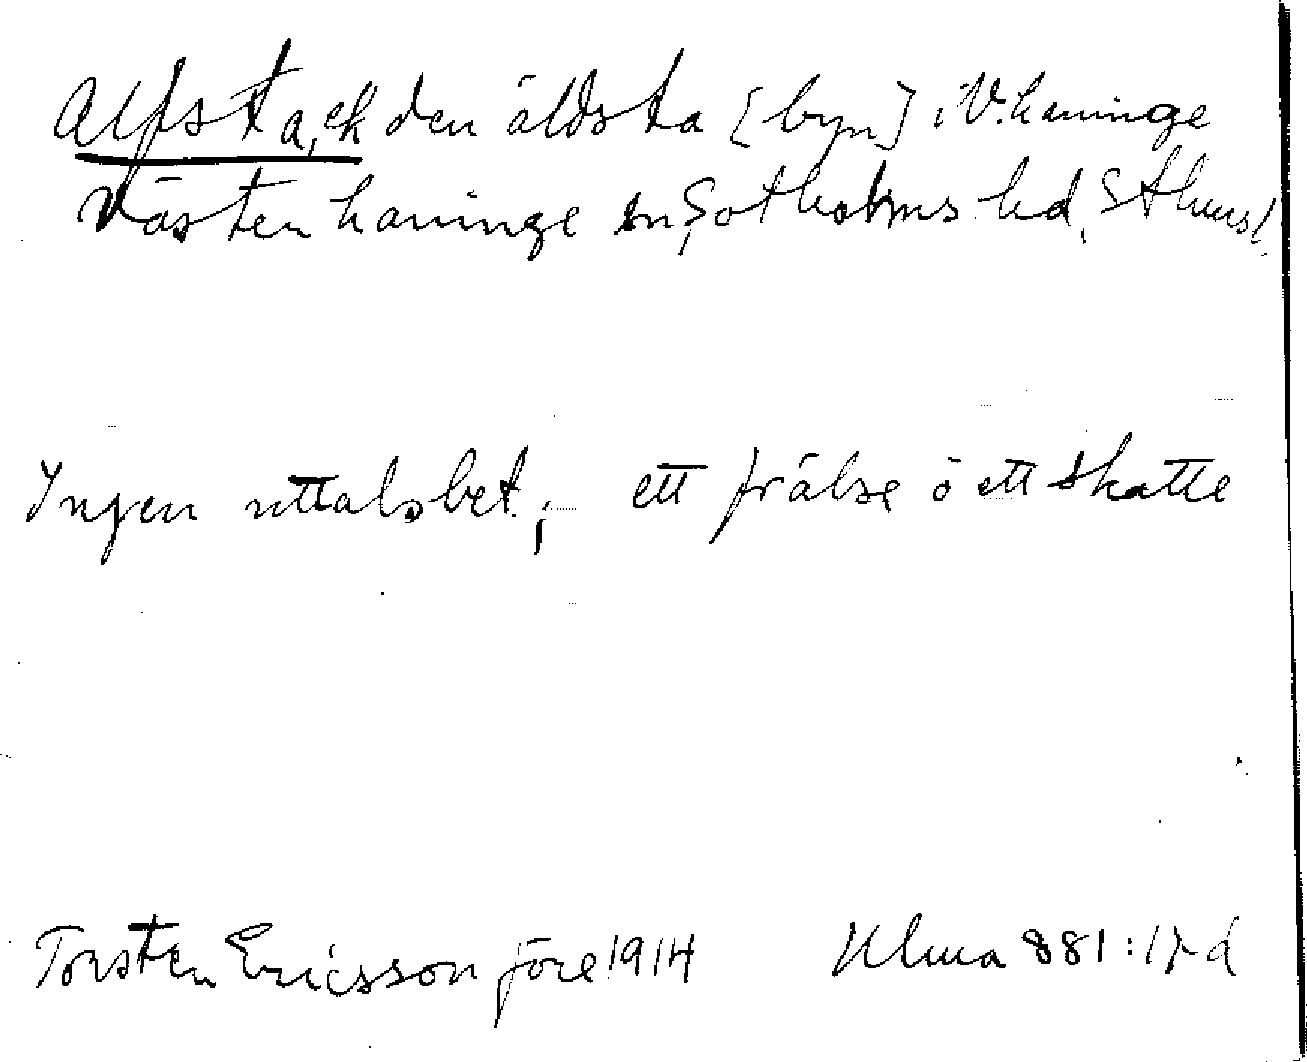 Alfsta, ek den äldsta [byn] i V. haninge
Västerhaninge sn, Sotholms hd, Sthms l.
Ingen uttalsbet; ett frälse ö ett skatte
Torsten Ericsson före 1914 Ulma 881:17 d